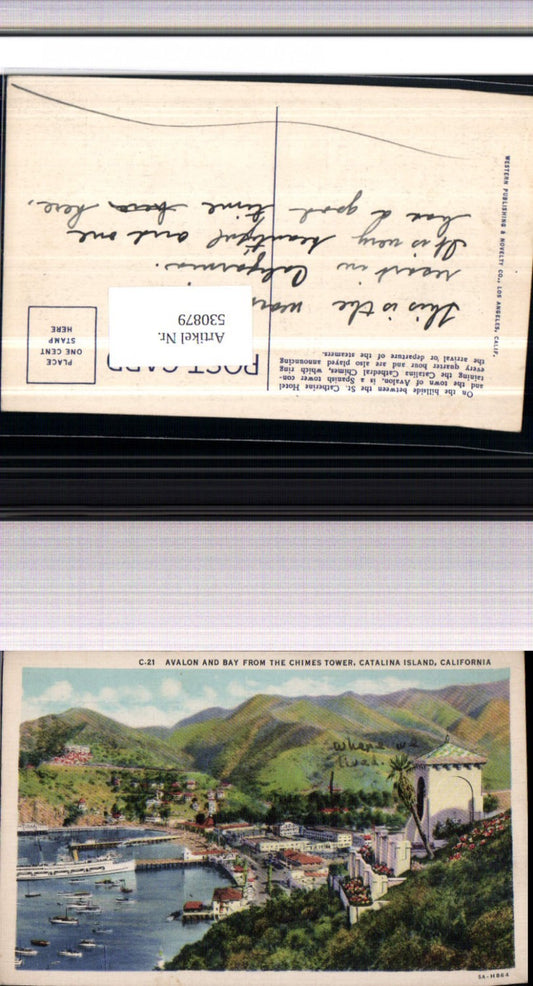 On the hillside between the St. Catherine Hotel
and the town of Avalon, is a Spanish tower con-
taining the Catalina Cathedral Chimes, which ring
every quarter hour and are also played announcing
the arrival or departure of the steamers.
POST CARD
PLACE
ONE CENT
STAMP
HERE
Artikel Nr.
530879
This is the
resort in California.
It is very beautiful and one
has a good time here,
WESTERN PUBLISHING & NOVELTY CO., LOS ANGELES, CALIF.
C-21 AVALON AND BAY FROM THE CHIMES TOWER, CATALINA ISLAND, CALIFORNIA
where we
lived.
5A-H864